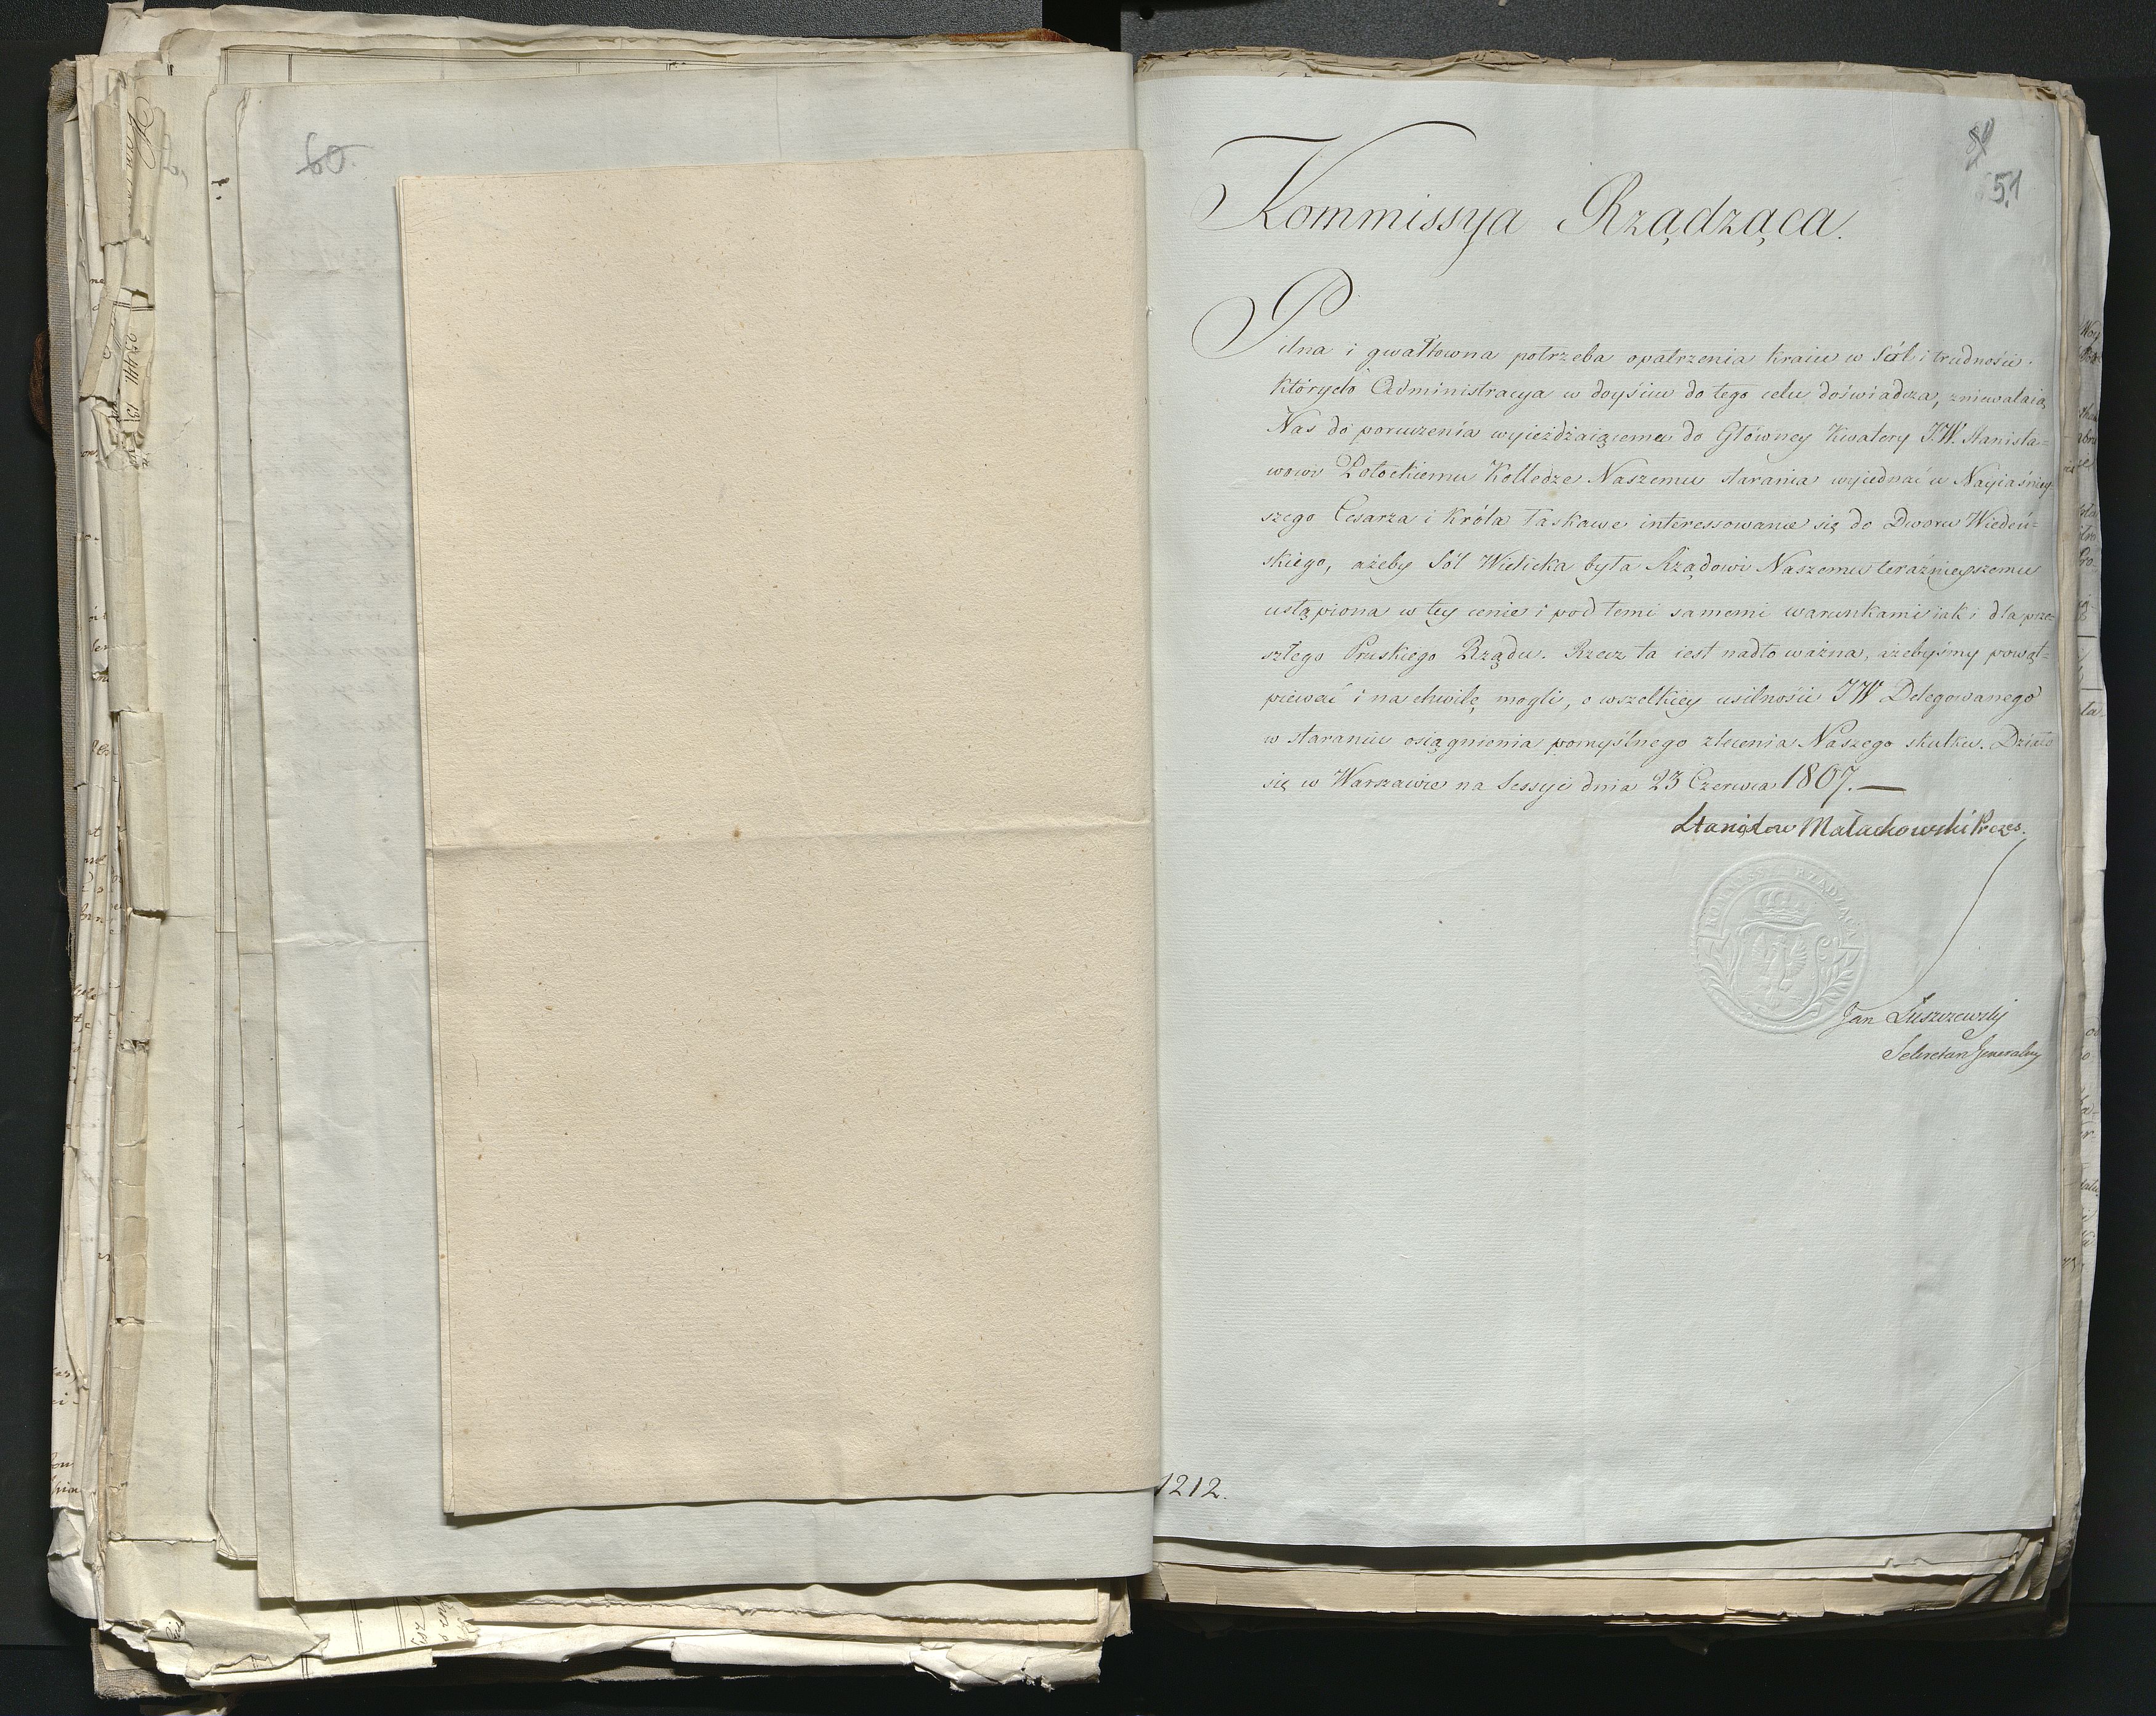 60.
51
Kommissya Rządząca.
Pilna i gwałtowna potrzeba opatrzenia kraiu w Sól i trudności
których Administracya w doyściu do tego celu doświadcza, zniewalaią
Nas do poruczenia wyieżdżaiącemu do Główney Kwatery J.W. Stanisła=
wowi Potockiemu Kolledze Naszemu starania wyiednać u Nayiaśniey
szego Cesarza i Króla łaskawe interessowanie się do Dworu Wiedeń=
skiego, ażeby Sól Wielicka była Rządowi Naszemu teraźnieyszemu
ustąpiona w tey cenie i pod temi samemi warunkami iak i dla prze=
szłego Pruskiego Rządu. Rzecz ta iest nadto ważna, ażebyśmy powąt=
piewać i na chwilę mogli, o wszelkiey usilności JW Delegowanego
w staraniu osiągnienia pomyślnego zlecenia Naszego skutku. Działo
się w Warszawie na Sessyi dnia 23 Czerwca 1807.—
Stanisław Małachowski Prezes.
KOMMISSYA RZĄDZĄCA
Jan Łuszczewski
Sekretarz Generalny
1212.